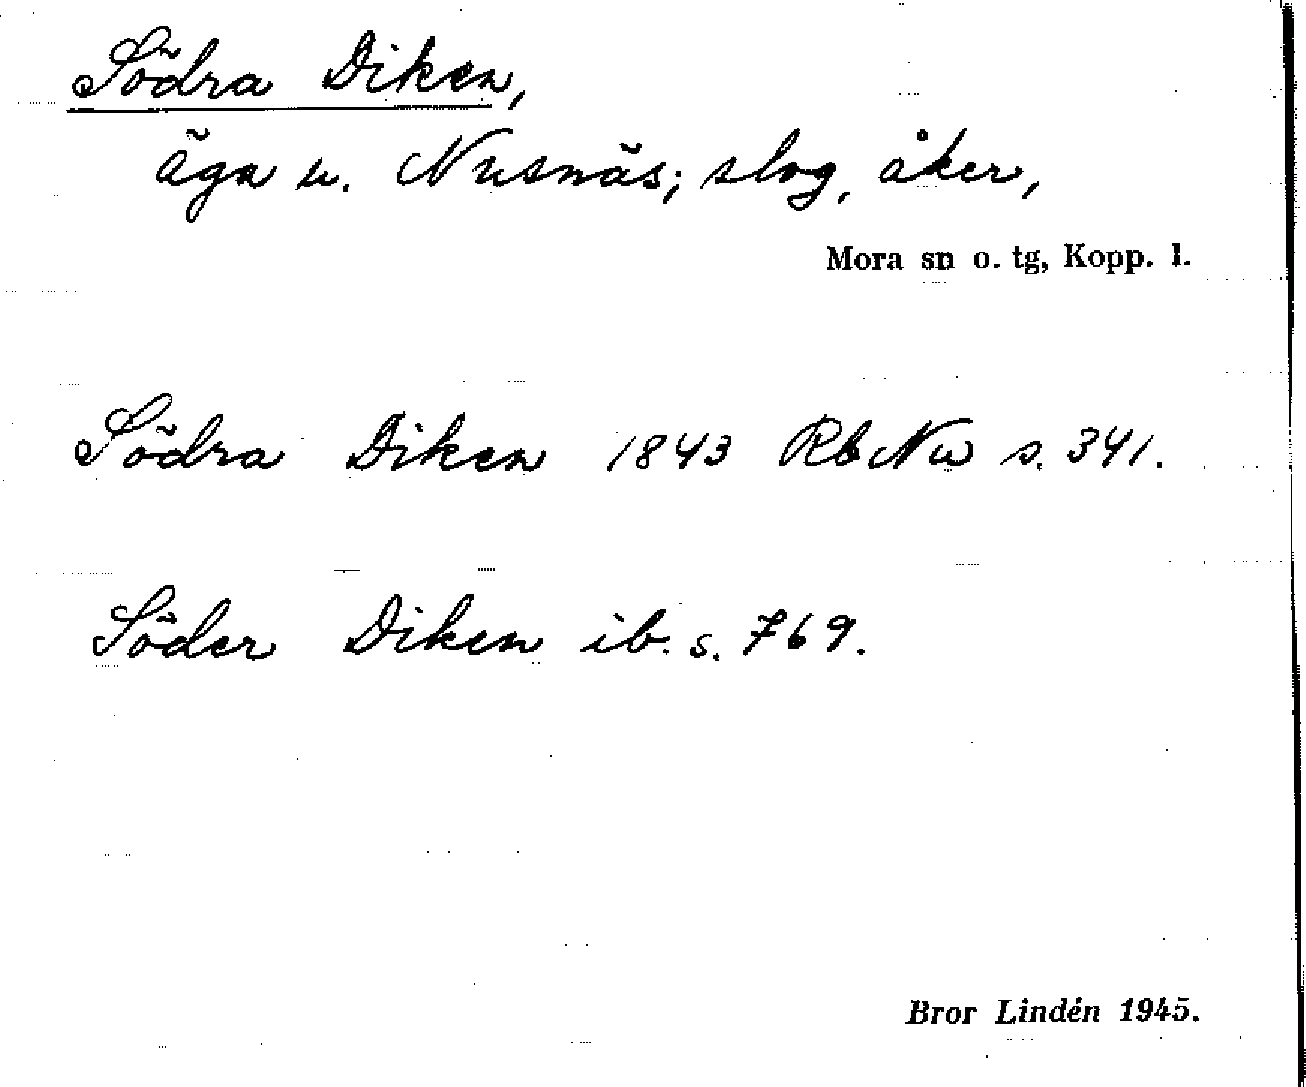 Södra Diken,
äga u. Nusnäs; slog, åker,
Mora sn o. tg, Kopp. l.
Södra Diken 1843 RbNw s. 341.
Söder Diken ib. s. 769.
Bror Lindén 1945.